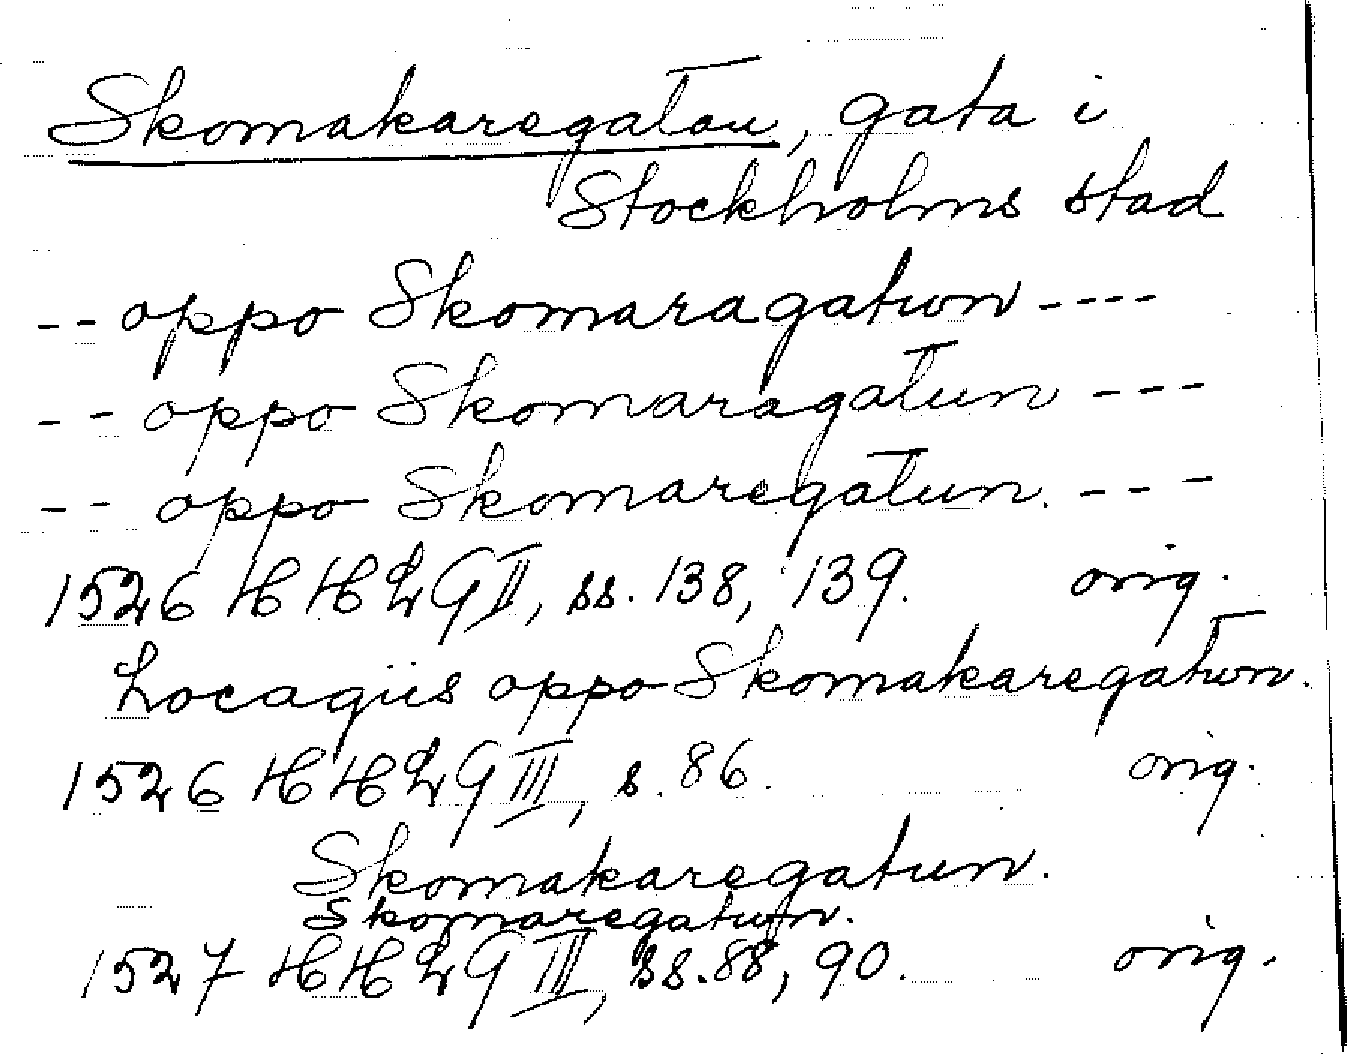 Skomakaregatan, gata i
Stockholms stad
-- oppo Skomaragatwn ----
-- oppo Skomaragatun ---
-- oppo Skomaregatun. ---
1526 HHLG II, ss. 138, 139. orig.
Locagiis oppo Skomakaregatwn.
1526 HHLG III, s. 86. orig.
Skomakaregatun.
Skomaregatwn.
1527 HHLG III, ss. 88, 90. orig.